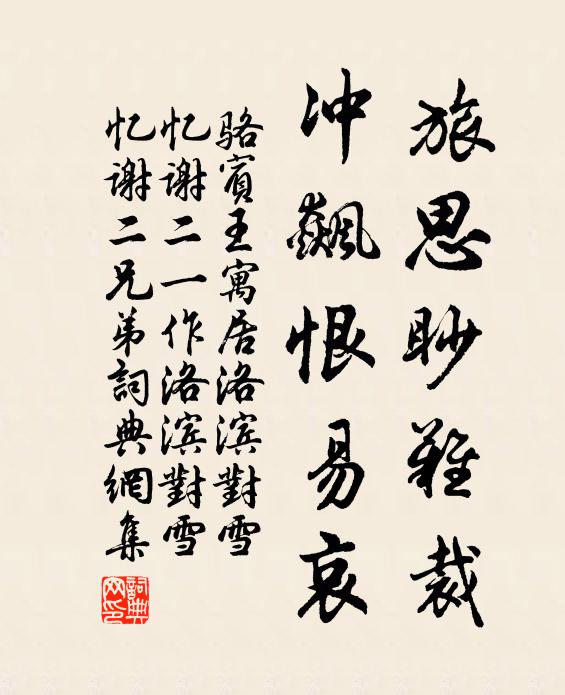 旅思眇難裁
冲飆恨易哀
骆賓王寓居洛滨對雪
忆谢二一作洛滨對雪
忆谢二兄弟詞典網集
詞典網印